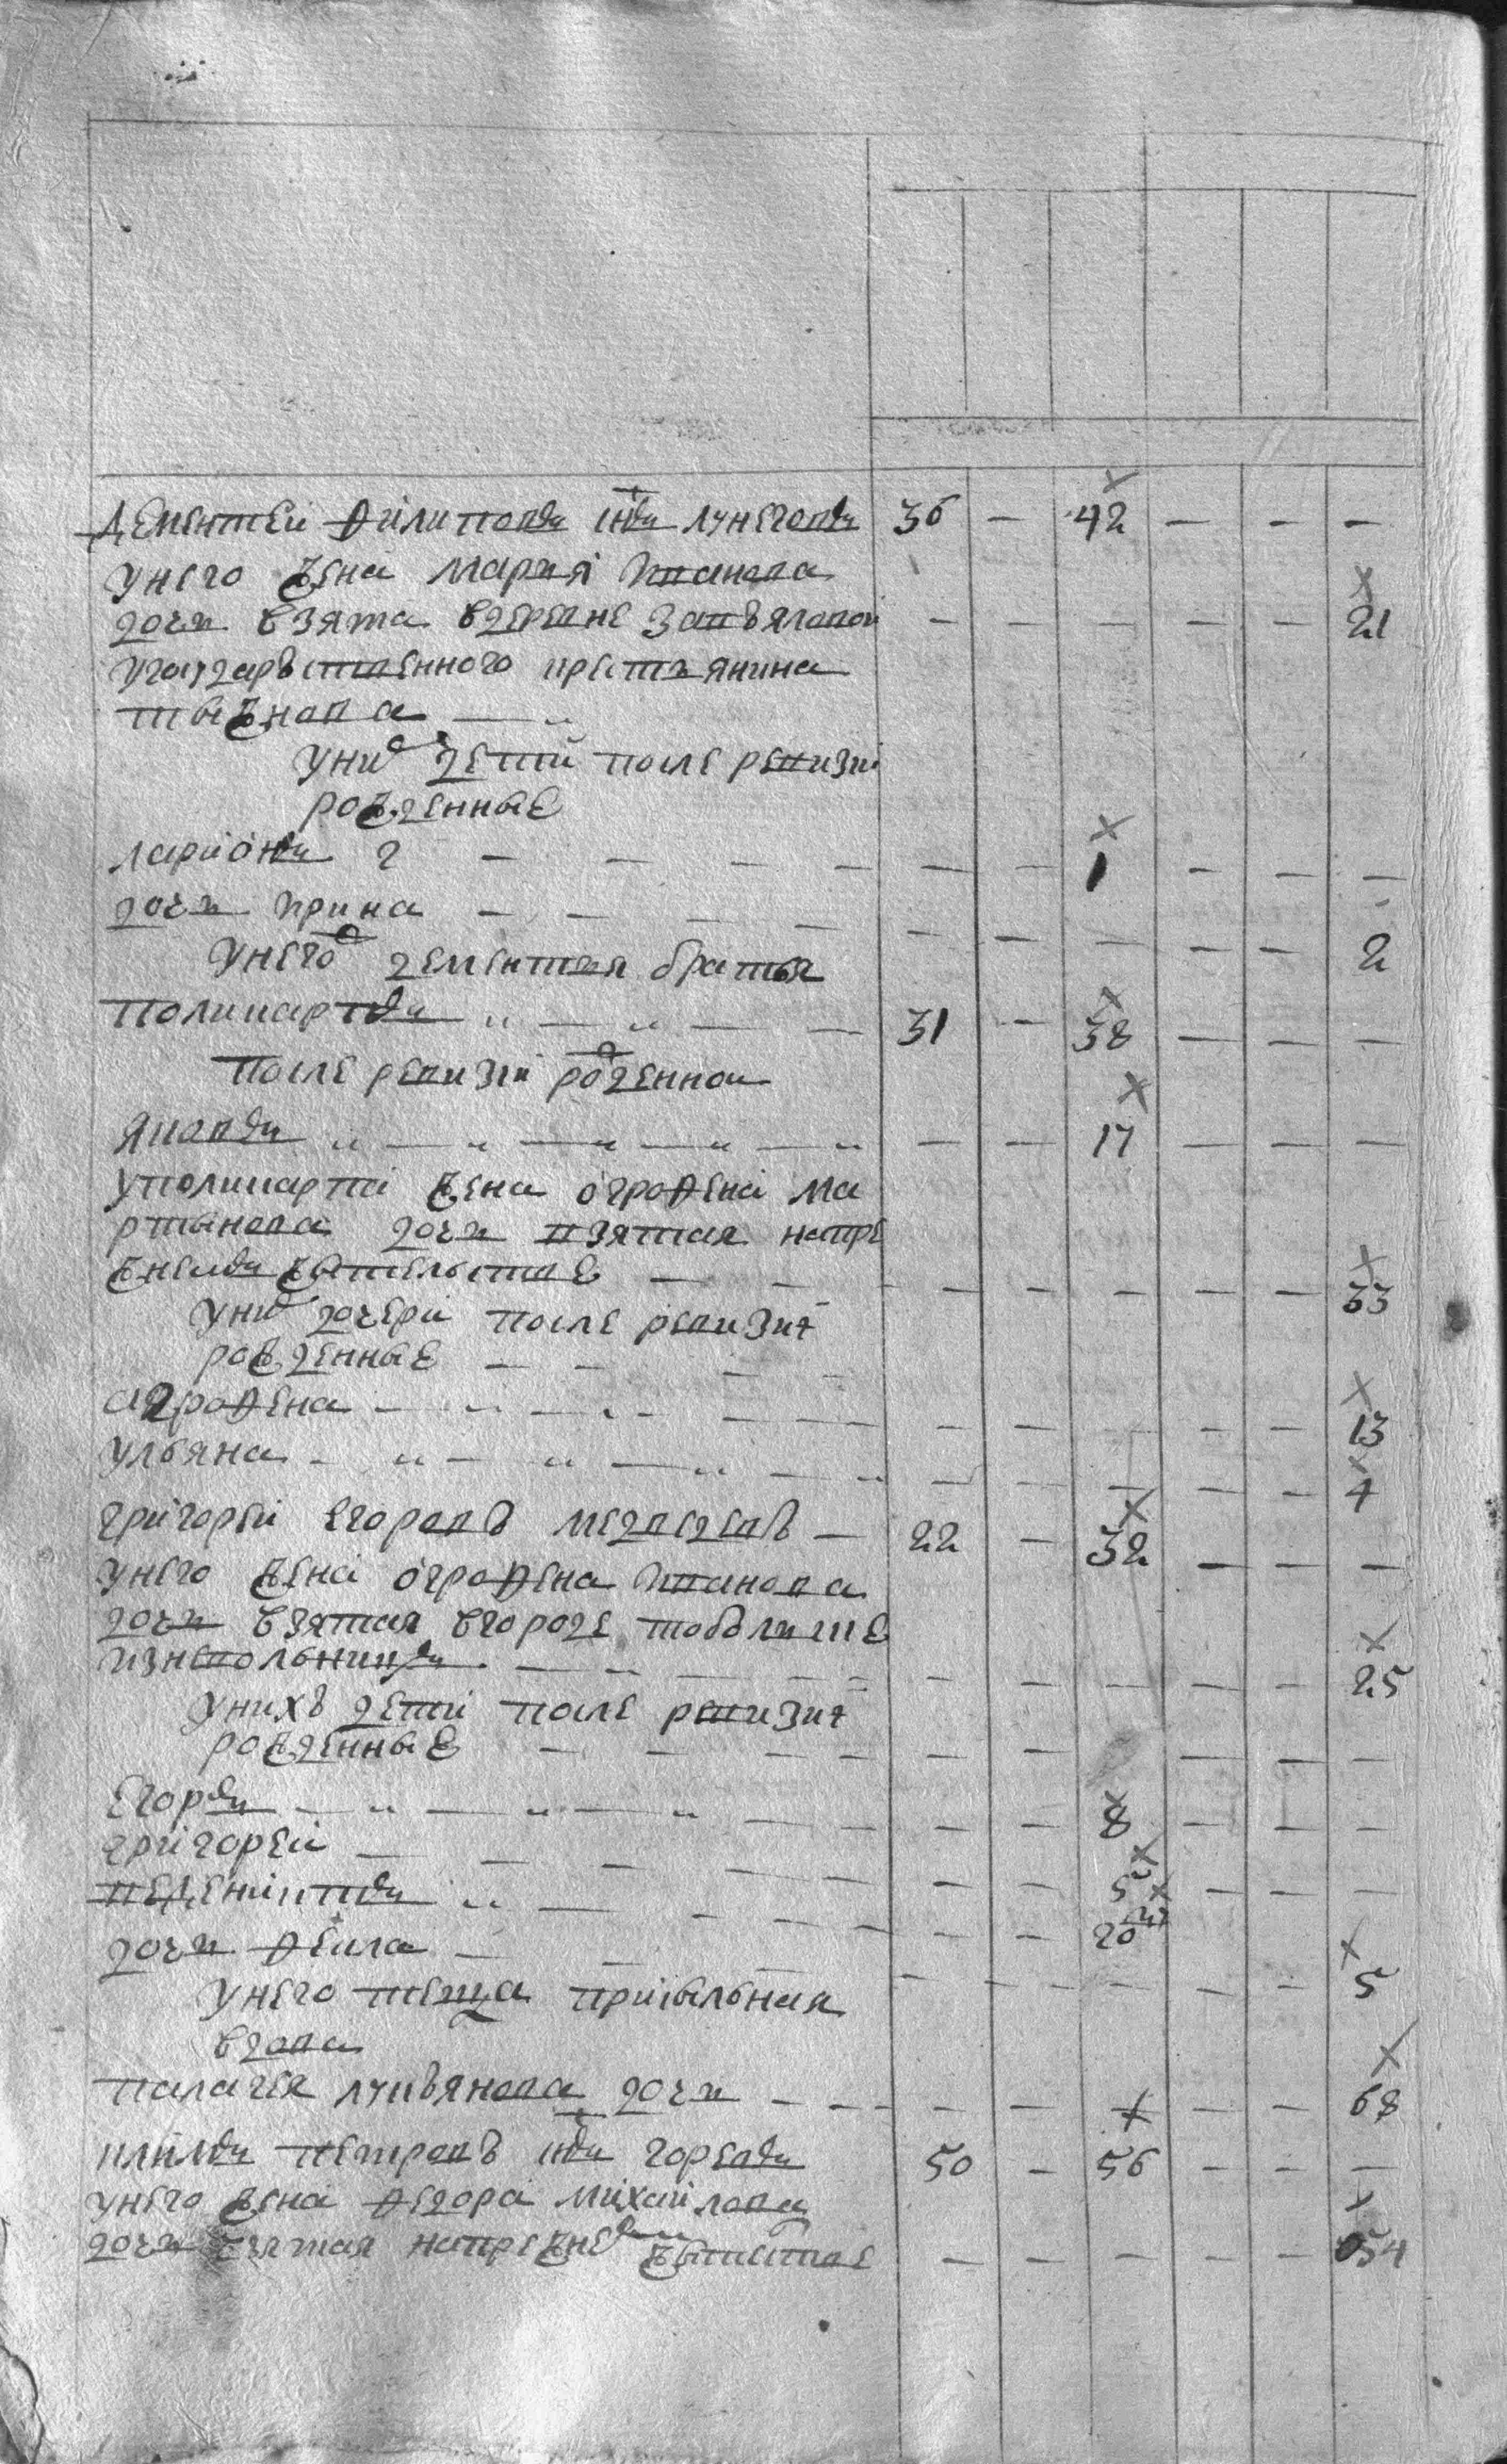 Дементей Филиповъ снъ лунеговъ 36 — 42 — — —
унего жена Мария Иванова
дочи взята вдеревне Завьяловой — — — — — 21
угосударьственного крестьянина
тыжнова — "
уних детей после ревизиі
рожденные
лариōнъ 2 — — — — — — 1 — — —
дочи Ирина — — — — — — — — — 2
унего дементея братья
поликарпъ " — " — — 31 — 38 — — —
после ревизіи роденной
Яковъ " — " — " — " — " — — 17 — — —
уполикарпа жена огрофена Ма
ртынова дочи взятая напре
жнемъ жытельстве — — — — — — — 33
уних дочери после ревизиї
рожденные — — — —
агрофена — " — " — — — — — — — 13
ульяна — " — " — " — " — — — — — 4
григорей Егоровъ медведевъ — 22 — 32 — — —
унего жена огрофена Иванова
дочи взятая вгороде тоболске
изневольникъ — " — — — — — — — — 25
унихъ детей после ревизиї
рожденные — — — — — — — — —
Егоръ — " — " — " — — — — 8 — — —
григорей — — — — — — — 5 — — —
дочи Фекла — — — — — — — — — 5
унего теща
вдова
палагея лукьянова дочи — — — — — — — — 68
климъ петровъ снъ горевъ 50 — 56 — — —
унего жена Федора михайлова
дочи взятая напрежнемъ — — — — — 54